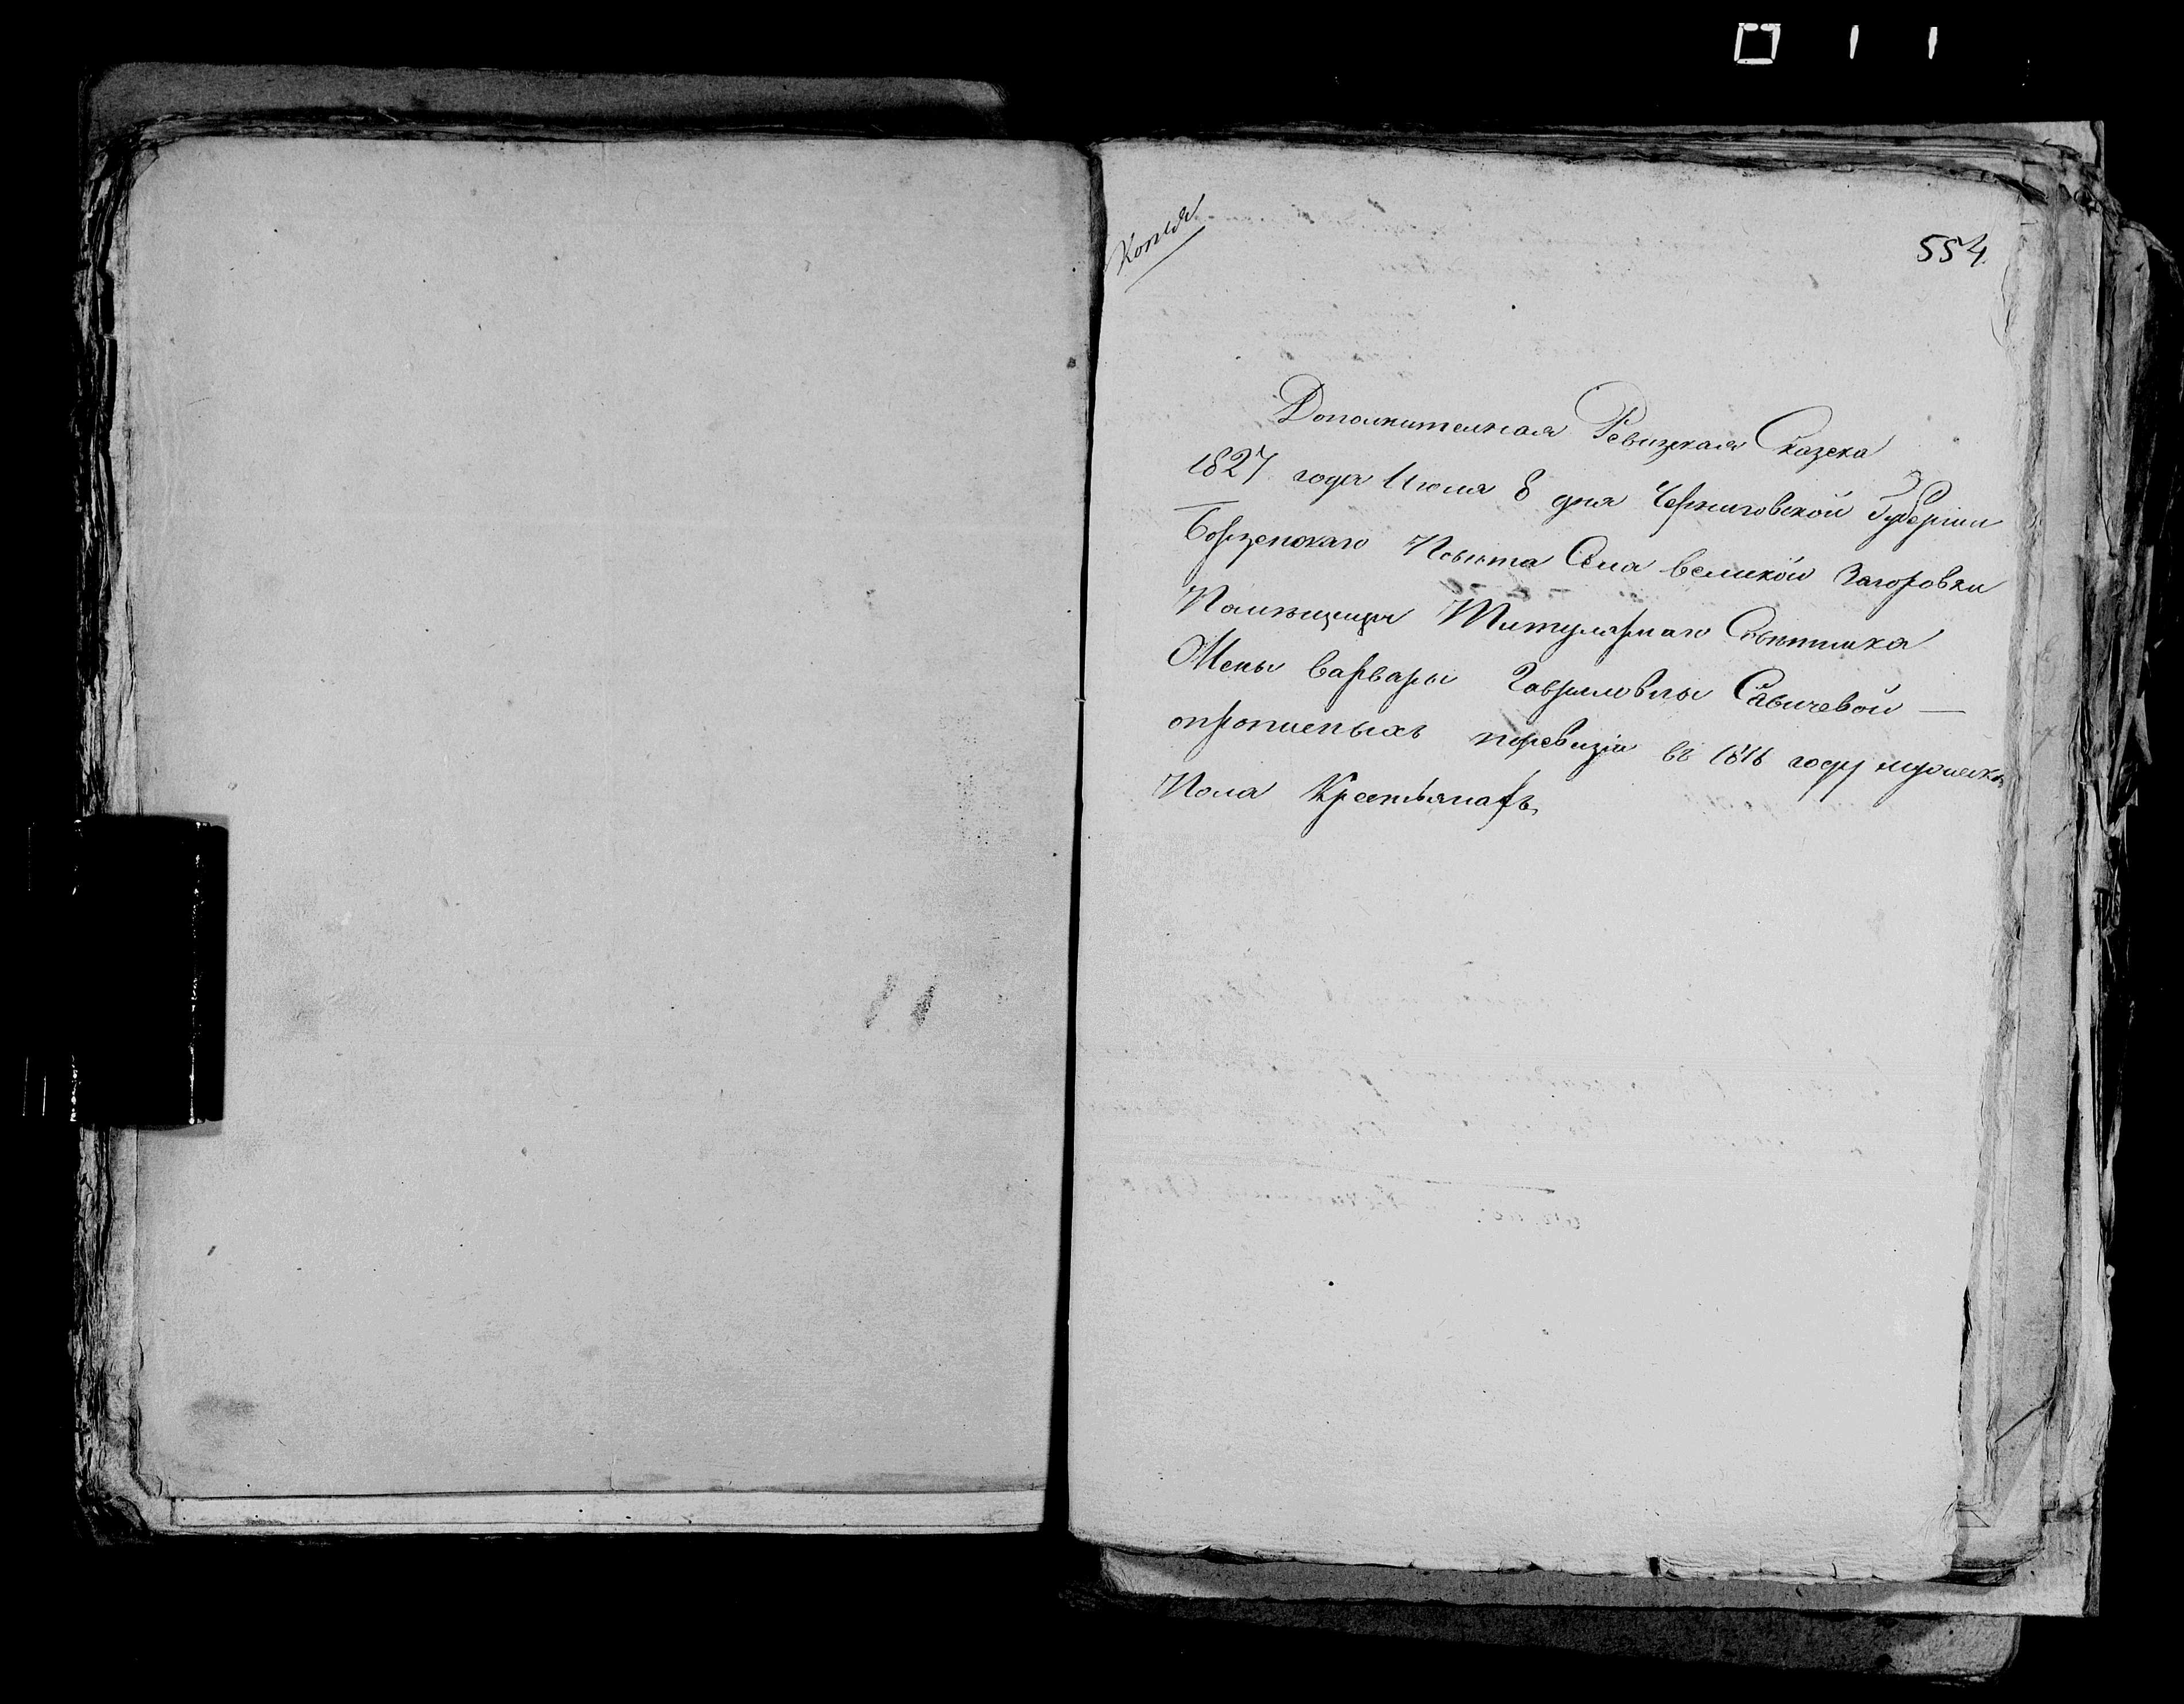 Копія
554
Дополнителная Ревизская Сказска
1827 года Июля 8 дня Черниговской Губернии
Борзенскаго Повѣта Села великой Загоровки
Помѣщицы Титулярнаго Совѣтника
Жены Варвары Гавриловны Савичевой —
опрописныхъ поревизіи въ 1816 году мужеска
Пола Крестьянахъ